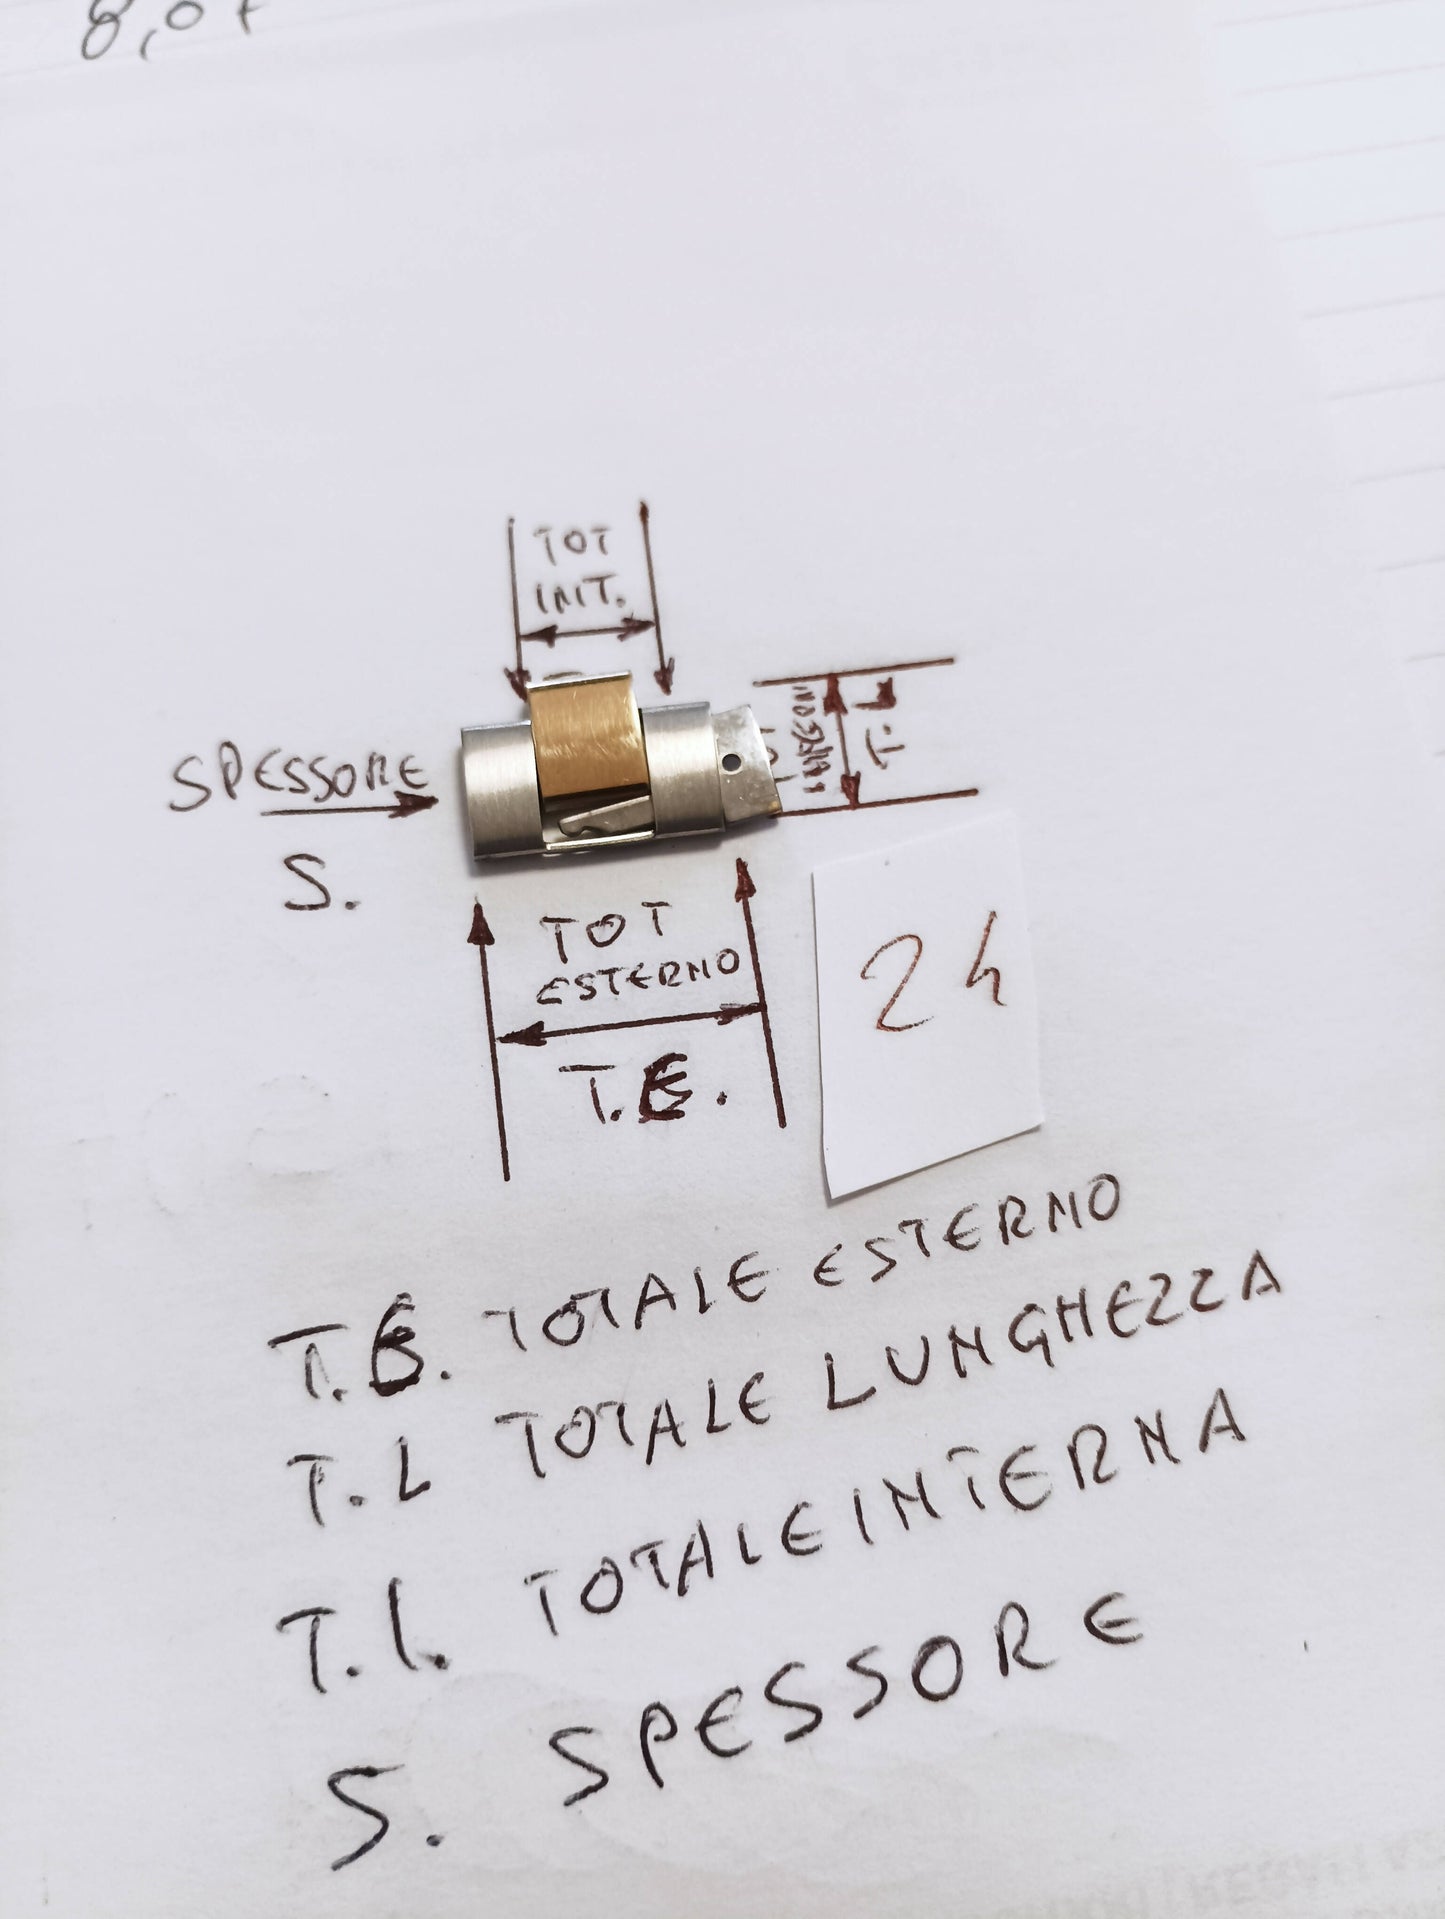 TOT
INT.
SPESSORE
S.
T.L
TOT
ESTERNO
T.E.
24
T.E. TOTALE ESTERNO
T.L TOTALE LUNGHEZZA
T.I. TOTALE INTERNA
S. SPESSORE